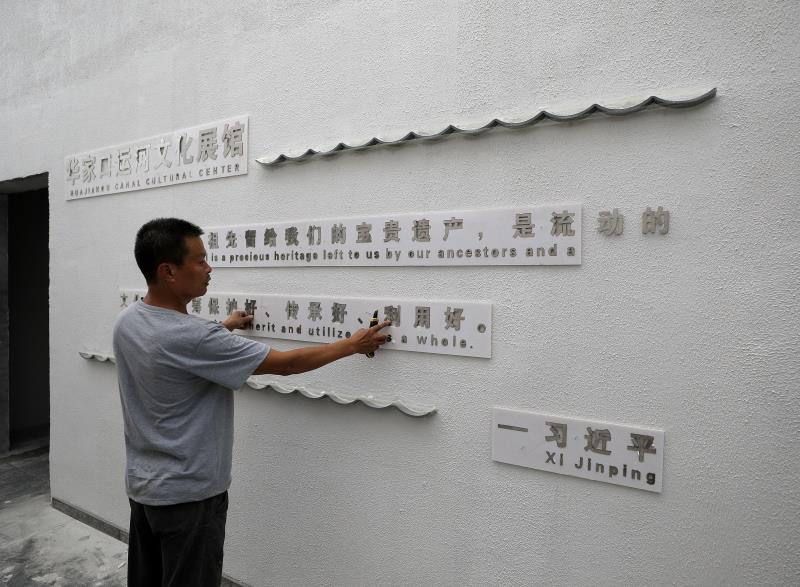 华家口运河文化展馆
HUAJIAKOU CANAL CULTURAL CENTER
祖先留给我们的宝贵遗产，是流动的
is a precious heritage left to us by our ancestors and a
文
保护好、传承好、利用好。
erit and utilize as a whole.
一 习近平
Xi Jinping